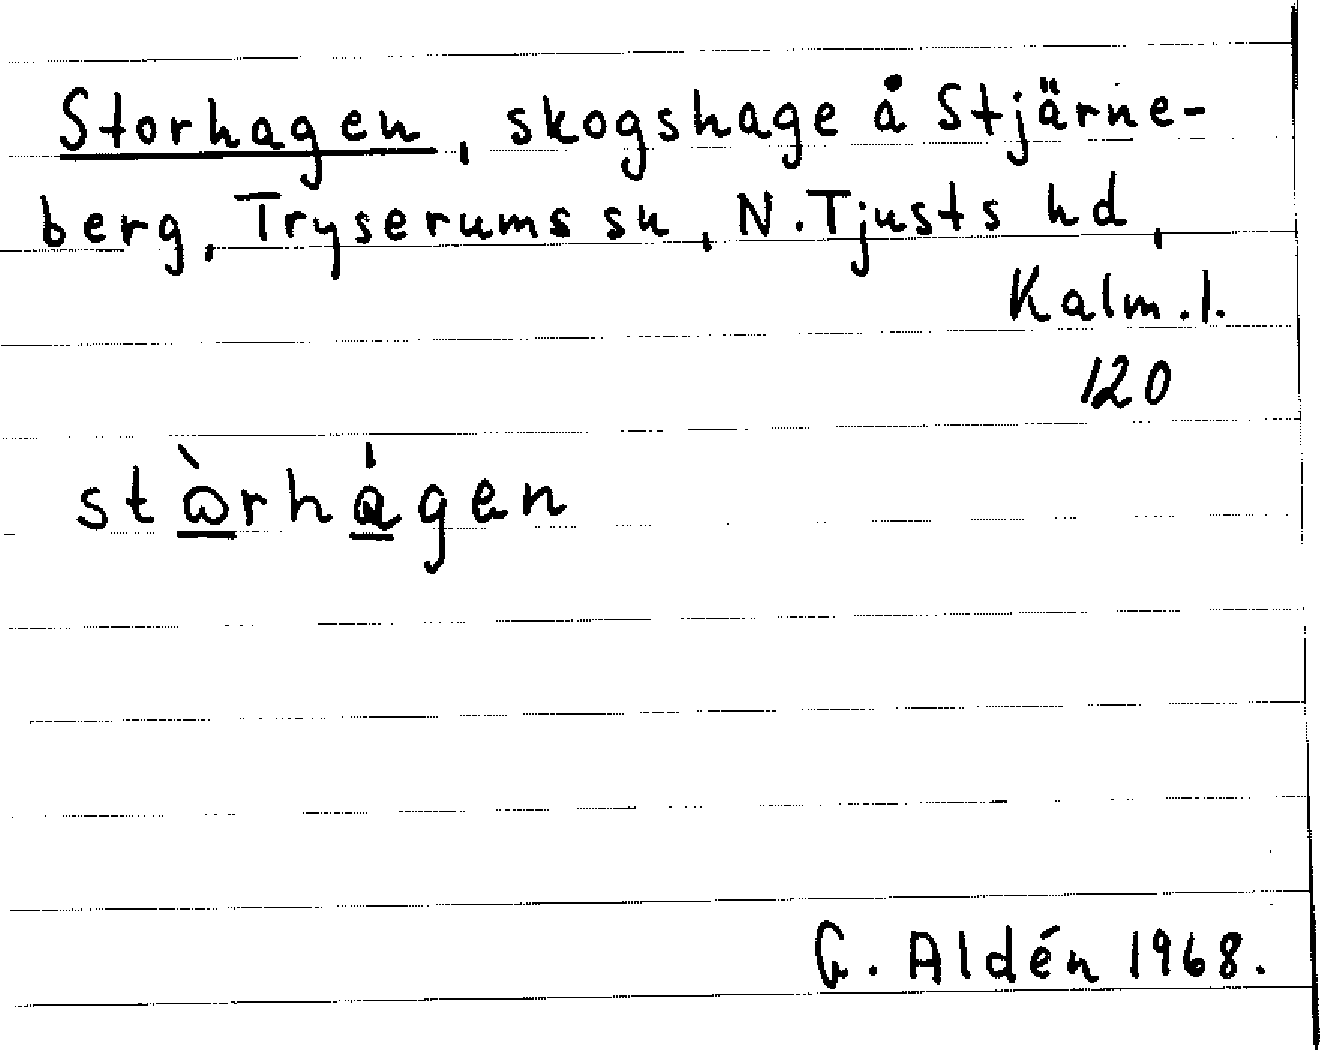 Storhagen, skogshage å Stjärne-
berg, Tryserums sn, N. Tjusts hd,
Kalm. l.
120
stὼrhágen
G. Aldén 1968.